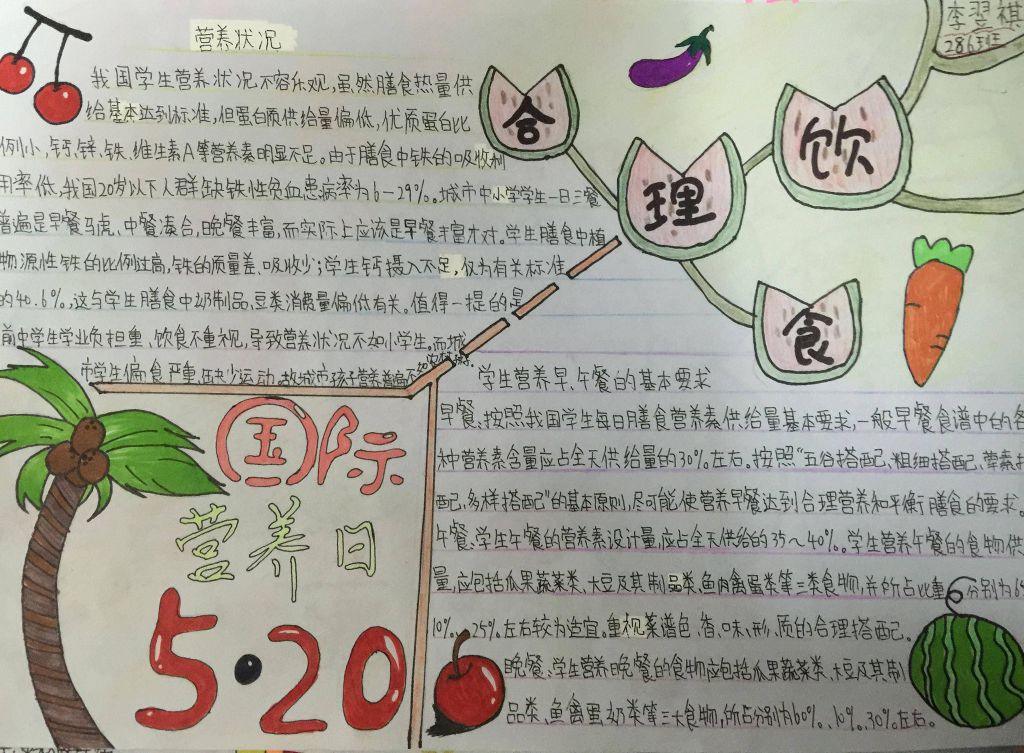 营养状况
我国学生营养状况不容乐观,虽然膳食热量供
给基本达到标准,但蛋白质供给量偏低,优质蛋白比
例小,钙、锌、铁、维生素A等营养素明显不足。由于膳食中铁的吸收利
用率低,我国20岁以下人群缺铁性负血患病率为6-29%。城市中小学学生一日三餐
普遍是早餐马虎、中餐凑合,晚餐丰富,而实际上应该是早餐丰富才对。学生膳食中植
物源性铁的比例过高,铁的质量差、吸收少;学生钙摄入不足,仅为有关标准
的40.6%,这与学生膳食中奶制品、豆类消费量偏低有关。值得一提的是
前中学生学业负担重、饮食不重视,导致营养状况不如小学生。而城
市学生偏食严重,缺少运动,故城市孩子营养普遍不如农村孩子.
合理饮食
李翌祺
286班
国际
营养日
5·20
学生营养早、午餐的基本要求
早餐、按照我国学生每日膳食营养素供给量基本要求,一般早餐食谱中的各
种营养素含量应占全天供给量的30%左右。按照“五谷搭配、粗细搭配、荤素搭
配、多样搭配”的基本原则,尽可能使营养早餐达到合理营养和平衡膳食的要求。
午餐、学生午餐的营养素设计量,应占全天供给的35~40%。学生营养午餐的食物供
量,应包括瓜果蔬菜类、大豆及其制品类、鱼肉禽蛋类等三类食物,并所占比重分别为65
10%、25%左右较为适宜。重视菜谱色、香、味、形、质的合理搭配。
晚餐、学生营养晚餐的食物应包括瓜果蔬菜类、大豆及其制
品类、鱼禽蛋奶类等三大食物,所占分别为60%、10%、30%左右。